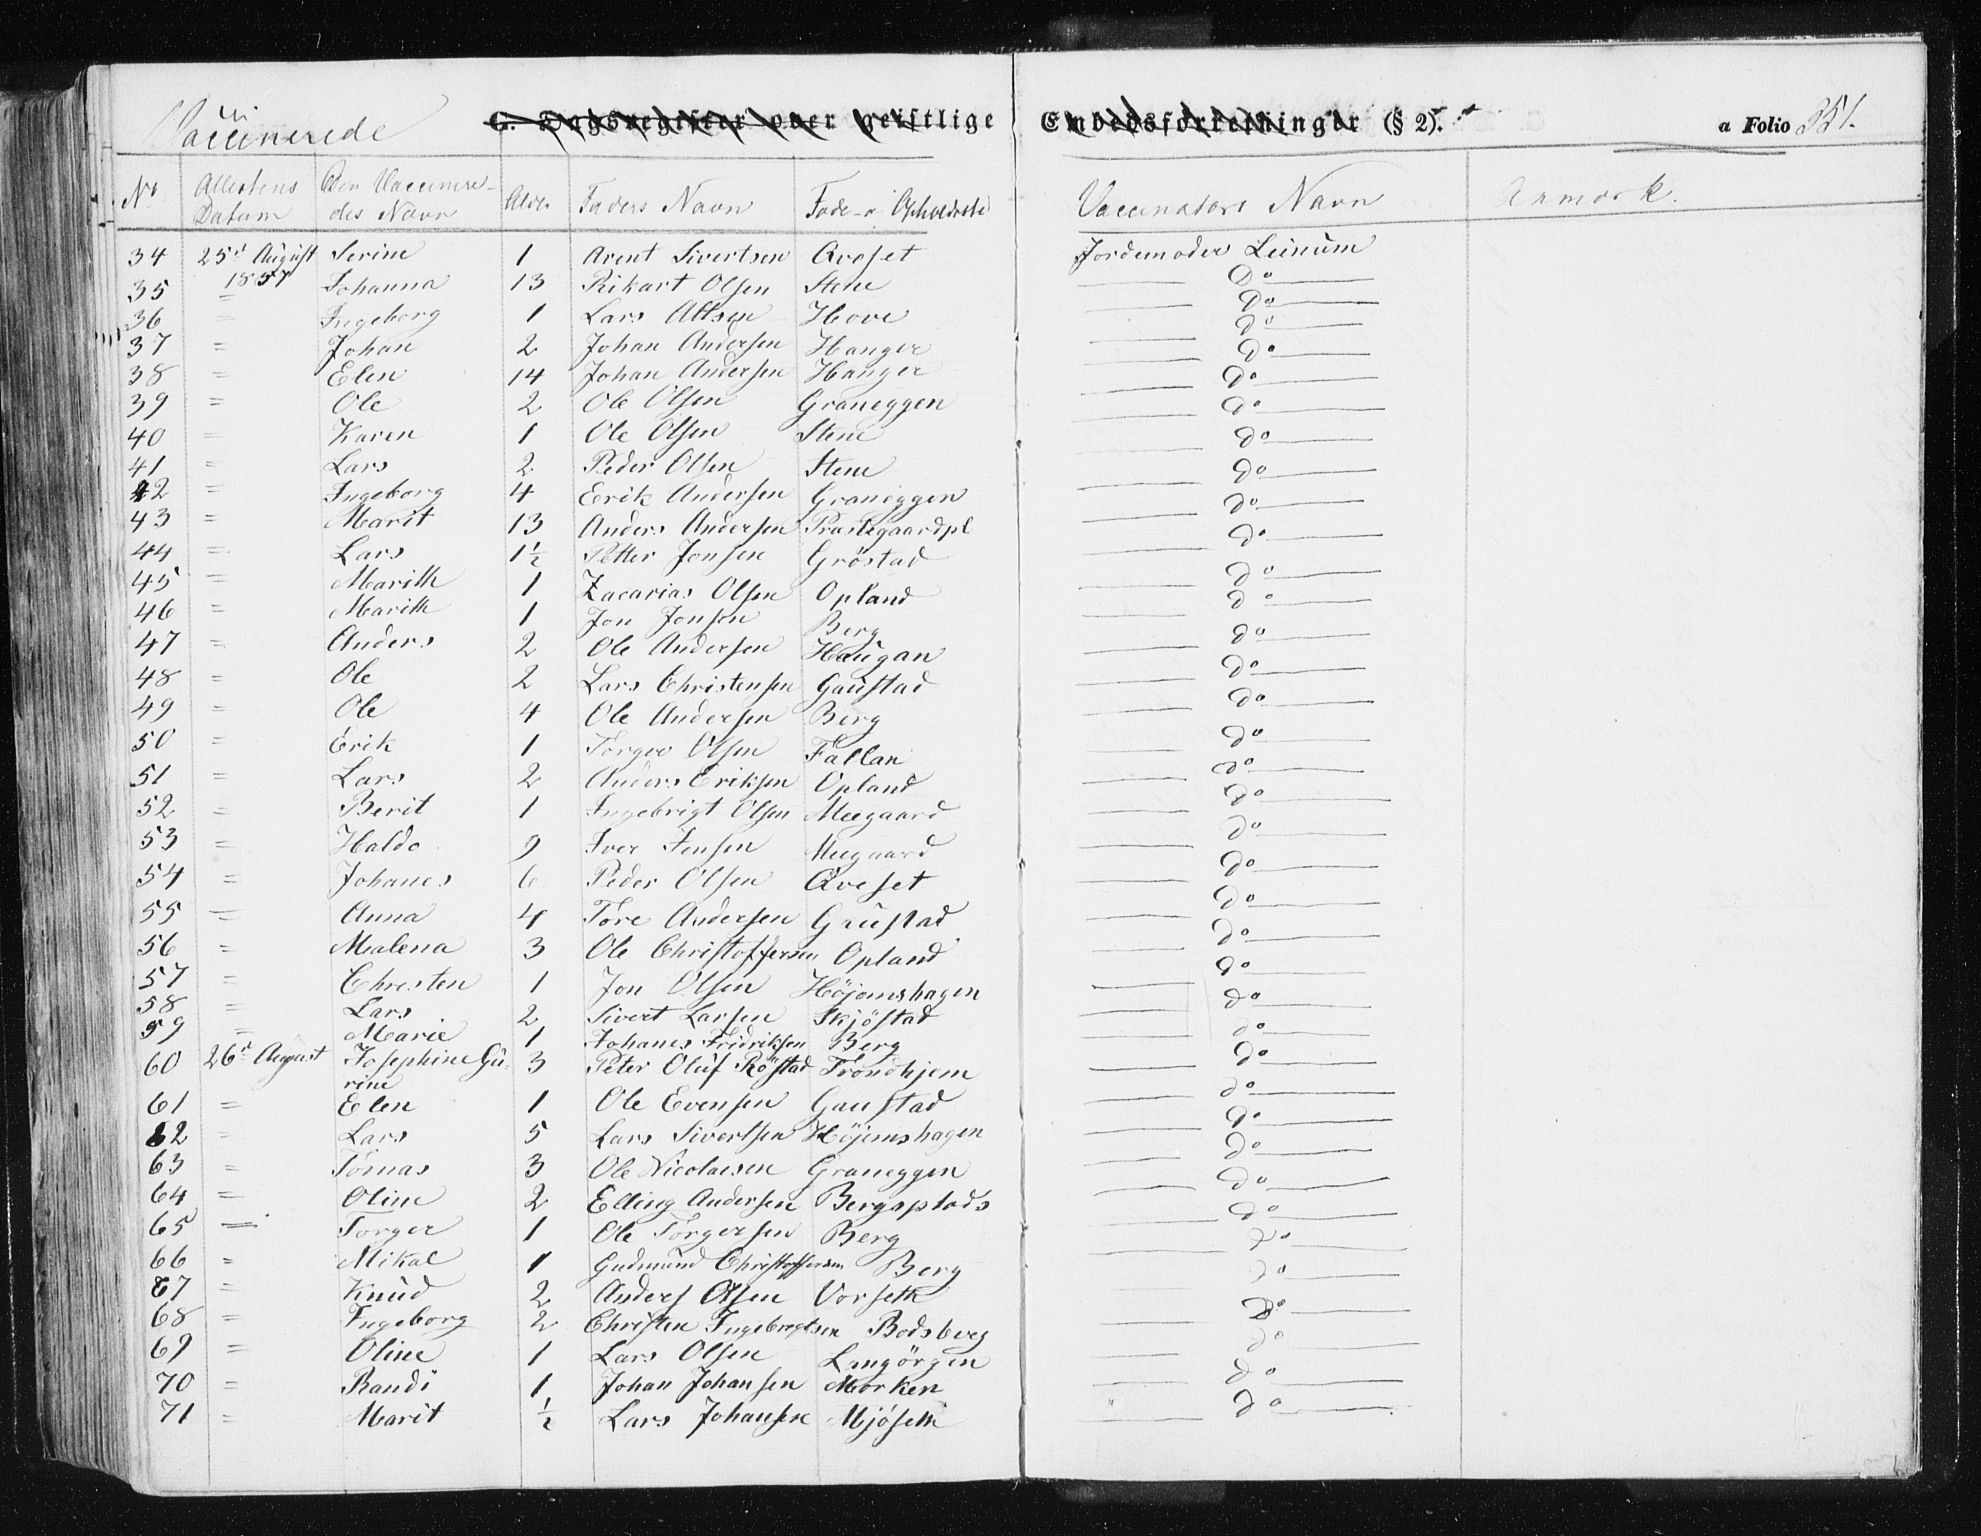 Vaccinerede G. Dagsregister over geistlige Embedsforretninger (§ 2). a Folio 351.
No Attestens Datum Den Vaccineredes Navn Alder Faders Navn Føde- o Opholdsstd Vaccinators Navn Anmærk.
34 25de August 1857 Serine 1 Arent Sivertsen Qveset Jordemoder Leinum
35 = Johanna 13 Rikart Olsen Stene Do
36 = Ingeborg 1 Lars Altsen Hove Do
37 = Johan 2 Johan Andersen Hanger do
38 = Elen 14 Johan Andersen Hanger do
39 = Ole 2 Ole Olsen Graneggen do
40 = Karen 1 Ole Olsen Stene do
41 = Lars 2 Peder Olsen Stene do
42 = Ingeborg 4 Erik Andersen Graneggen do
43 = Marit 13 Anders Andersen Præstegaardpl do
44 = Lars 1½ Petter Jonsen Gröstad do
45 = Marith 1 Zacarias Olsen Opland do
46 = Marith 1 Jon Jonsen Berg do
47 = Anders 2 Ole Andersen Haugan do
48 = Ole 2 Lars Christensen Gaustad do
49 = Ole 4 Ole Andersen Berg do
50 = Erik 1 Torger Olsen Fallan do
51 = Lars 2 Anders Eriksen Opland do
52 = Berit 1 Ingebrigt Olsen Meegaard do
53 = Haldo 9 Iver Jensen Meegaard do
54 = Johanes 6 Peder Olsen Qveset do
55 = Anna 4 Tore Andersen Grustad do
56 = Malena 3 Ole Christoffersen Opland do
57 = Christen 1 Jon Olsen Höjemshagen do
58 = Lars 2 Sivert Larsen Skjöstad do
59 = Marie 1 Johanes Fridriksen Berg do
60 26de August Josephine Gurine 3 Peter Oluf Röstad Trondhjem do
61 = Elen 1 Ole Evensen Gaustad do
62 = Lars 5 Lars Sivertsen Höjemshagen do
63 = Tomas 3 Ole Nicolaisen Graneggen do
64 = Oline 2 Elling Andersen Bergsplads do
65 = Torger 1 Ole Torgersen Berg do
66 = Mikal 1 Gudmund Christoffersen Berg do
67 = Knud 2 Anders Olsen Vorseth do
68 = Ingeborg 2 Christen Ingebregtsen Bodsberg do
69 = Oline 1 Lars Olsen Langörgen do
70 = Randi 1 Johan Johansen Morken do
71 = Marit ½ Lars Johansen Mjöseth " do